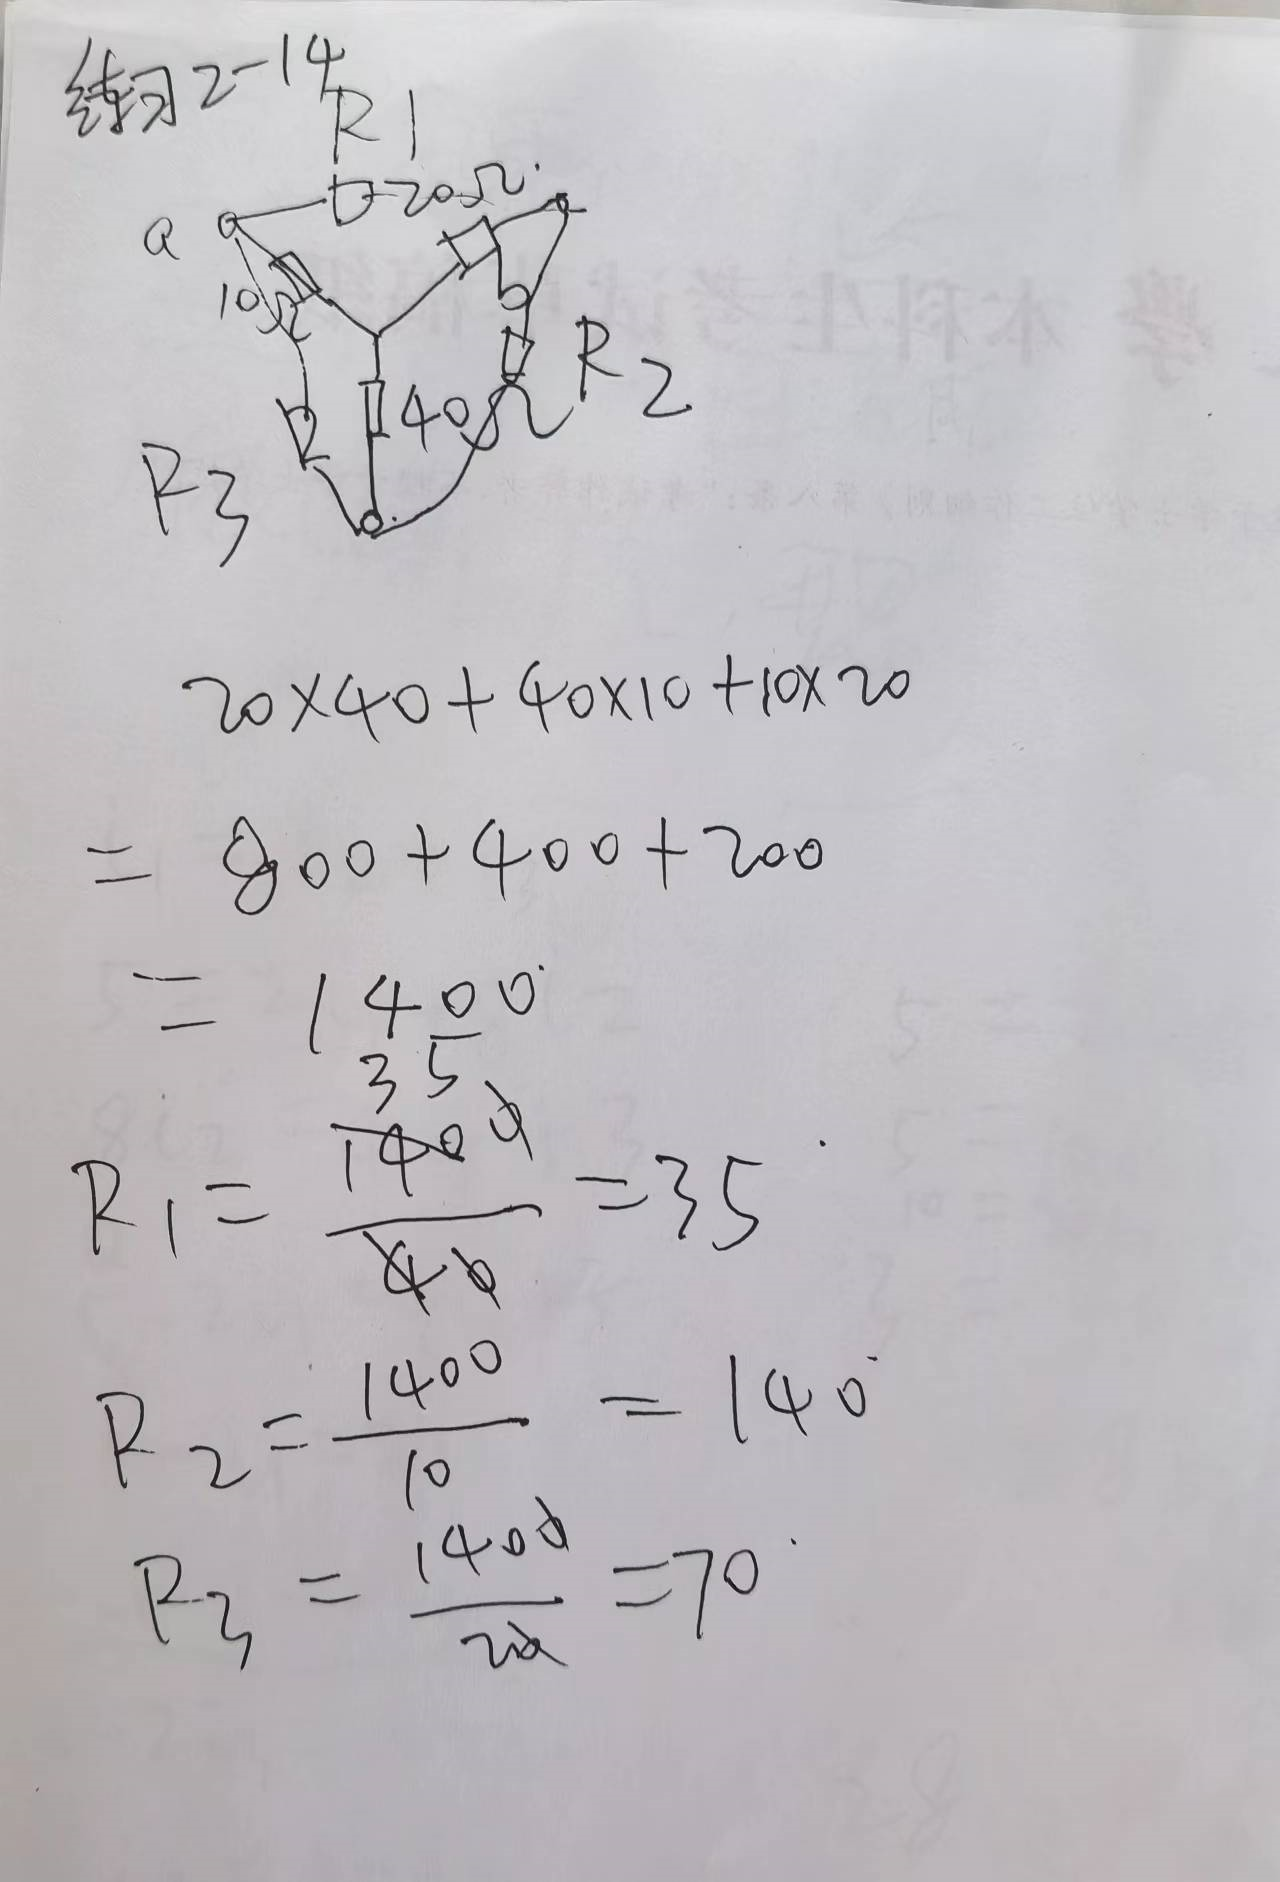 练习2-14
R1
a
20Ω
10Ω
R2
40Ω
R3
20×40+40×10+10×20
= 800+400+200
= 1400
35
R1 = 1400/40 = 35
R2 = 1400/10 = 140
R3 = 1400/20 = 70